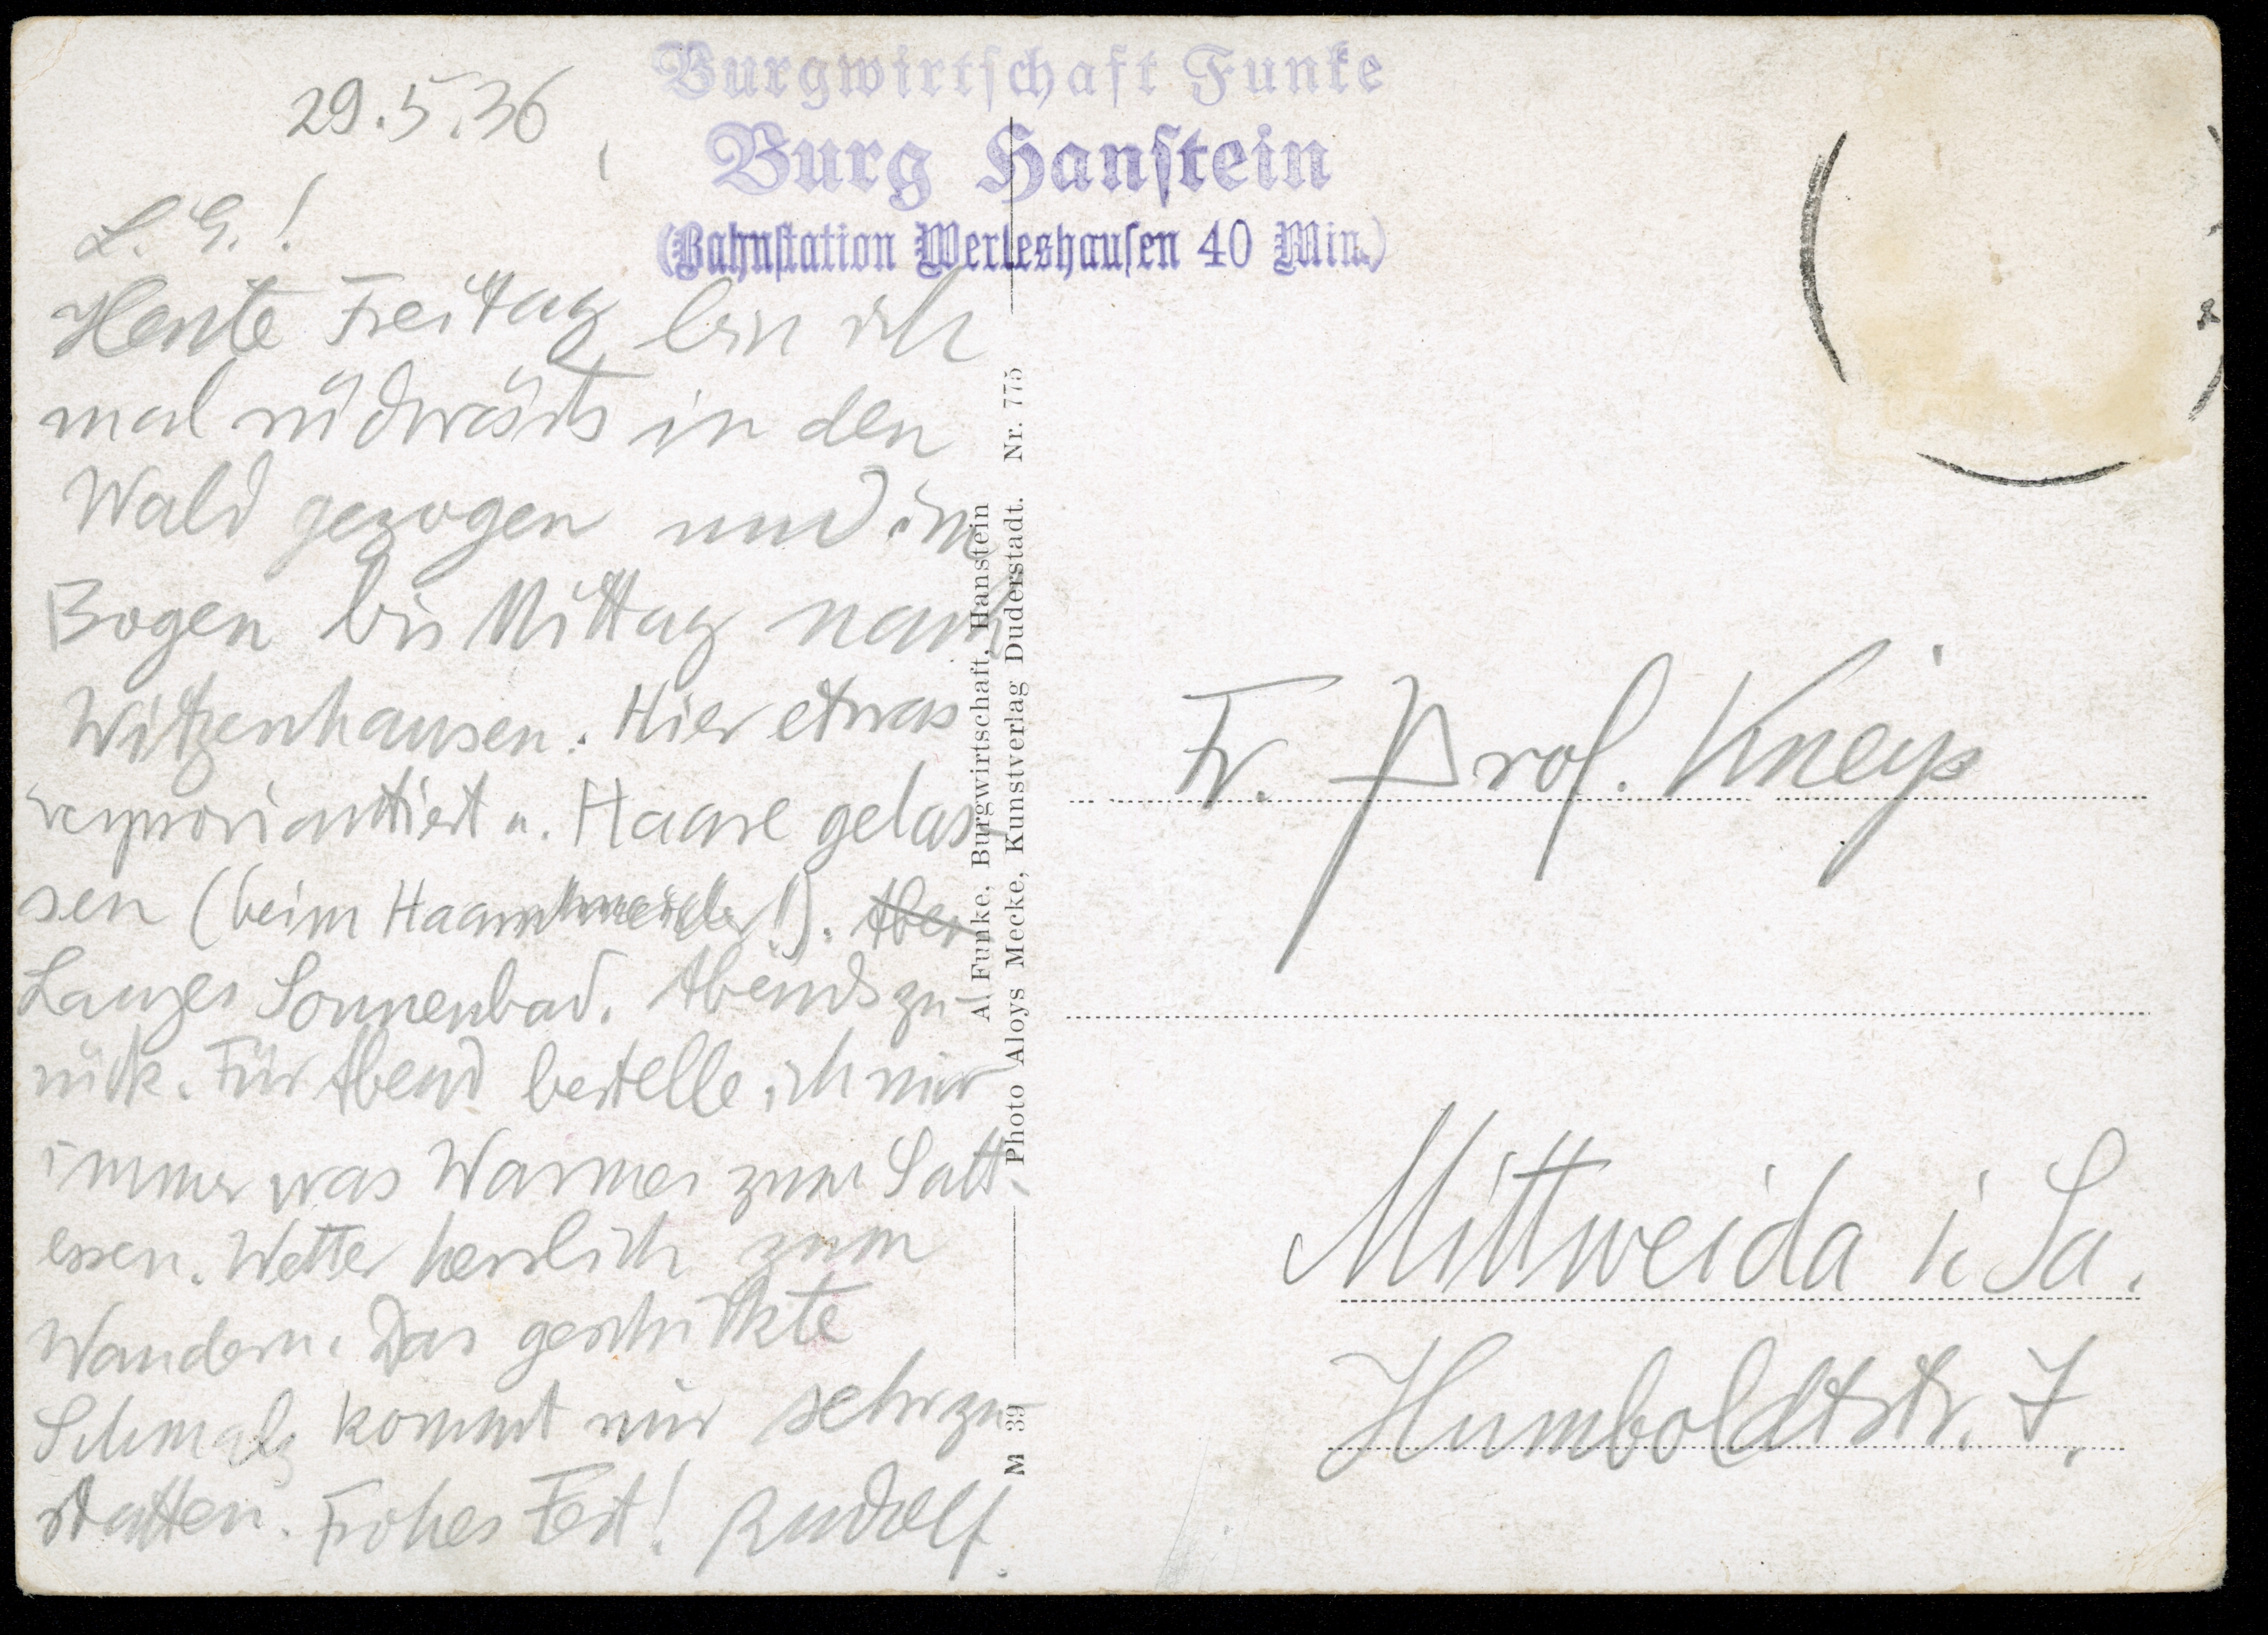 29.5.36
Burgwirtschaft Funke
Burg Hanstein
(Bahnstation Werleshausen 40 Min.)
L. G.!
Heute Freitag bin ich
mal südwärts in den
Wald gezogen und im
Bogen bis Mittag nach
Witzenhausen. Hier etwas
verproviantiert u. Haare gelas-
sen (beim Haarschneider!). Aber
Langes Sonnenbad. Abends zu-
rück. Für Abend bestelle ich mir
immer was Warmes zum Satt-
essen. Wetter herrlich zum
Wandern. Das geschickte
Schmalz kommt mir sehr zu-
statten. Frohes Fest! Rudolf.
Al Funke, Burgwirtschaft, Hanstein
M 39 Photo Aloys Mecke, Kunstverlag Duderstadt. Nr. 775
Fr. Prof. Kneip
Mittweida i. Sa.
Humboldtstr. 7.